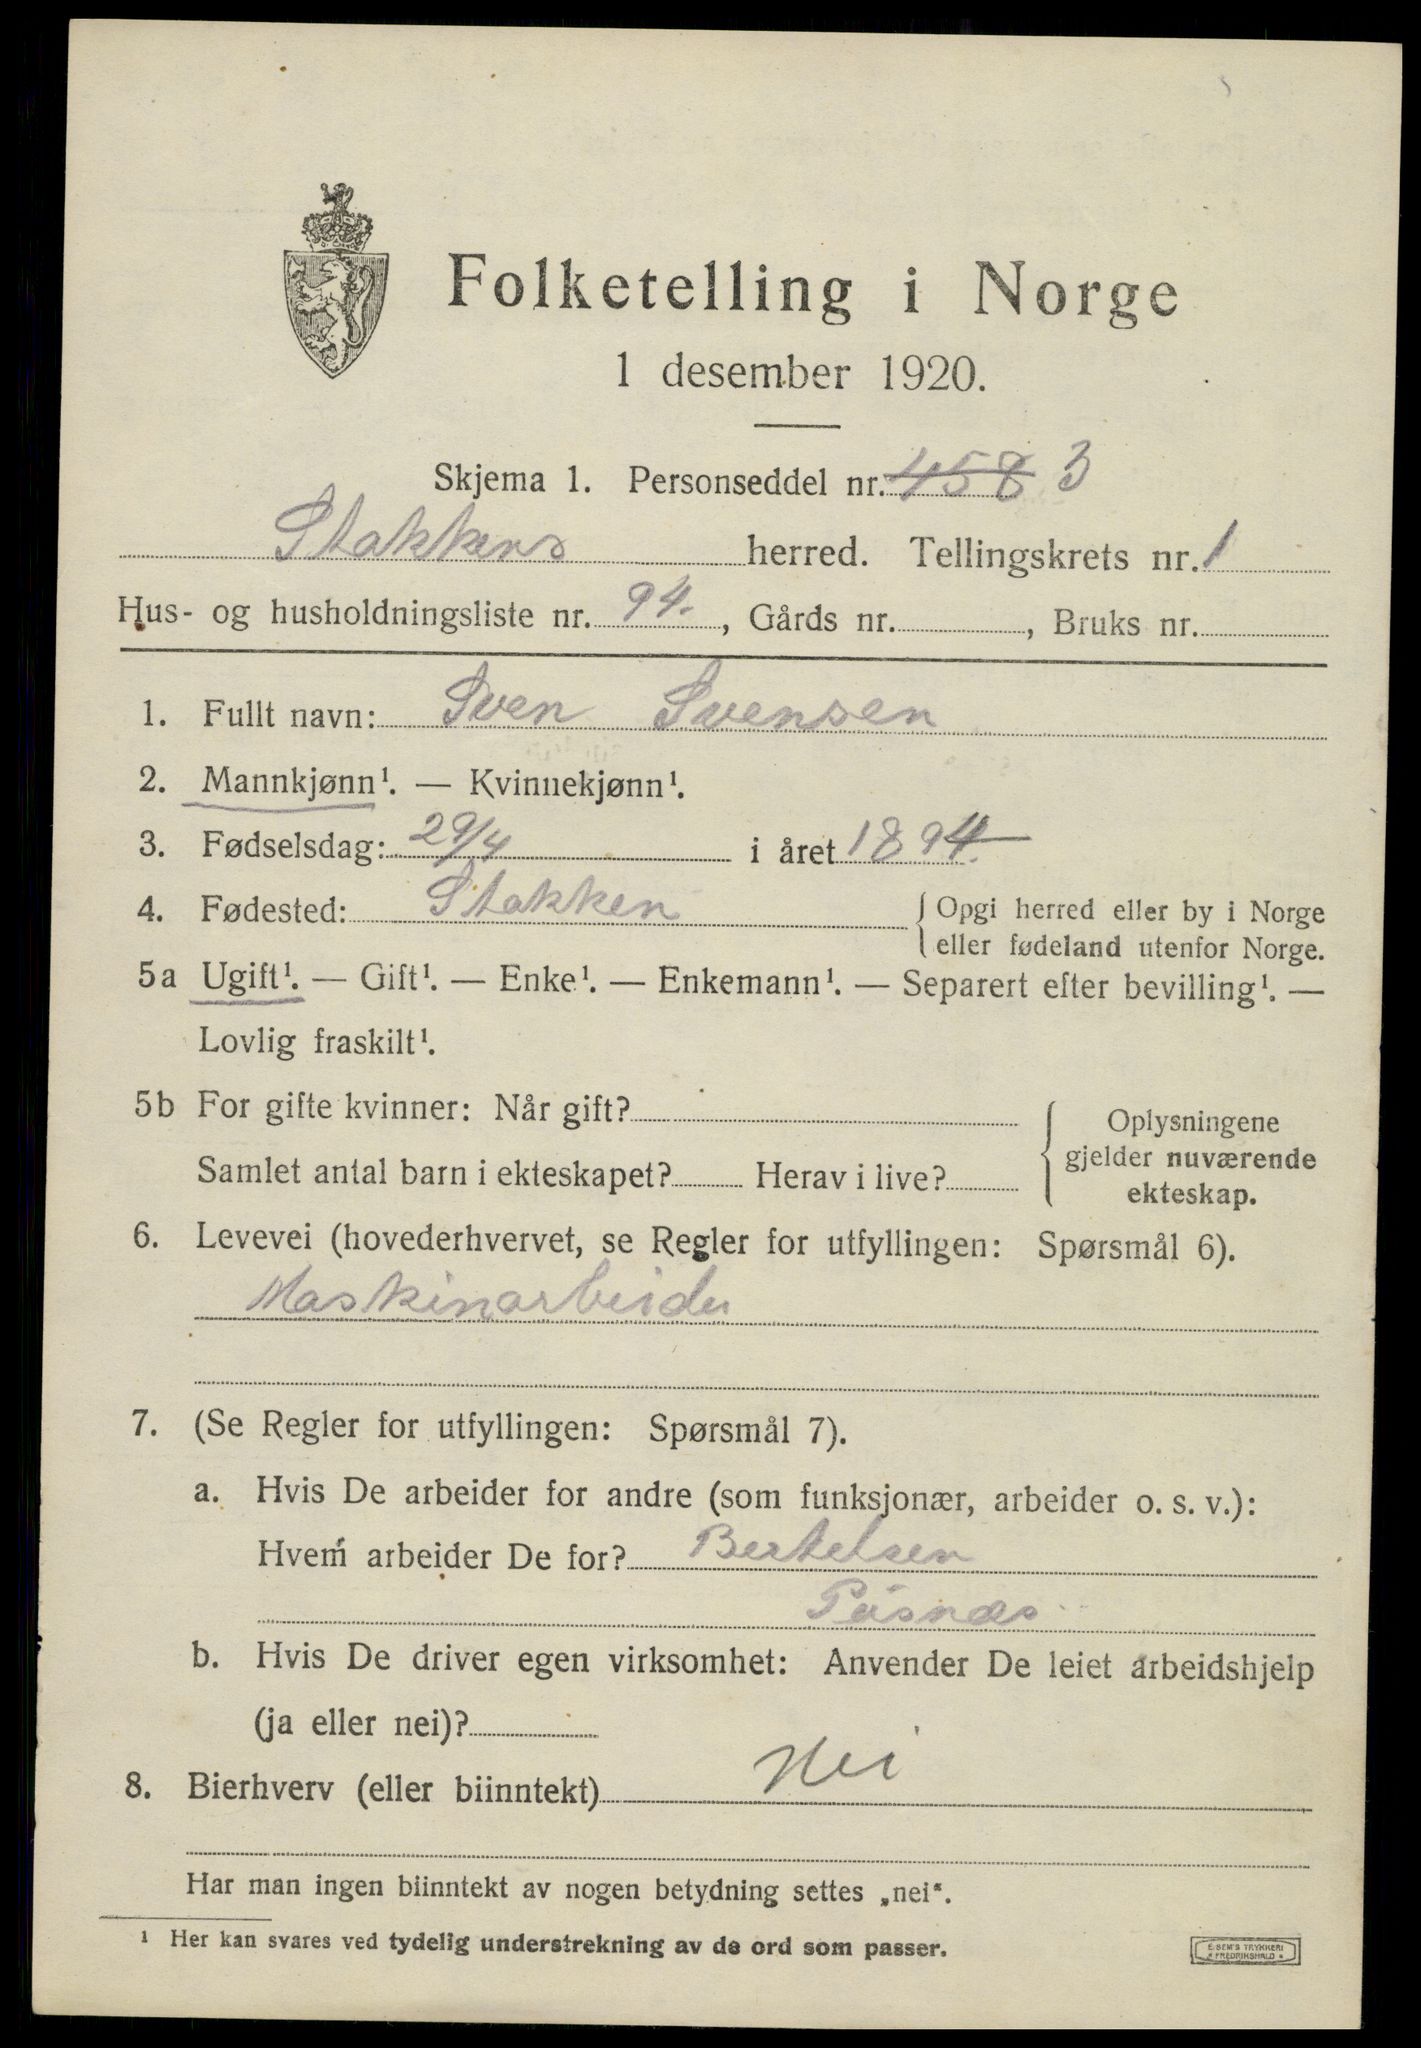 Folketelling i Norge
1 desember 1920.
Skjema 1. Personseddel nr. 458 3
Stokkens herred. Tellingskrets nr. 1
Hus- og husholdningsliste nr. 94. , Gårds nr. , Bruks nr.
1. Fullt navn: Sven Svensen
2. Mannkjønn¹. — Kvinnekjønn¹.
3. Fødselsdag: 29/4 i året 1894.
4. Fødested: Stokken { Opgi herred eller by i Norge
eller fødeland utenfor Norge.
5a Ugift¹. — Gift¹. — Enke¹. — Enkemann¹. — Separert efter bevilling¹. —
Lovlig fraskilt¹.
5b For gifte kvinner: Når gift? { Oplysningene
gjelder nuværende
Samlet antal barn i ekteskapet? Herav i live?
ekteskap.
6. Levevei (hovederhvervet, se Regler for utfyllingen: Spørsmål 6).
Maskinarbeider
7. (Se Regler for utfyllingen: Spørsmål 7).
a. Hvis De arbeider for andre (som funksjonær, arbeider o. s. v.):
Hvem arbeider De for? Bertelsen
Pusnæs
b. Hvis De driver egen virksomhet: Anvender De leiet arbeidshjelp
(ja eller nei)?
8. Bierhverv (eller biinntekt) Nei
Har man ingen biinntekt av nogen betydning settes „nei“.
¹ Her kan svares ved tydelig understrekning av de ord som passer.
E. SEM'S TRYKKERI
* FREDRIKSHALD *